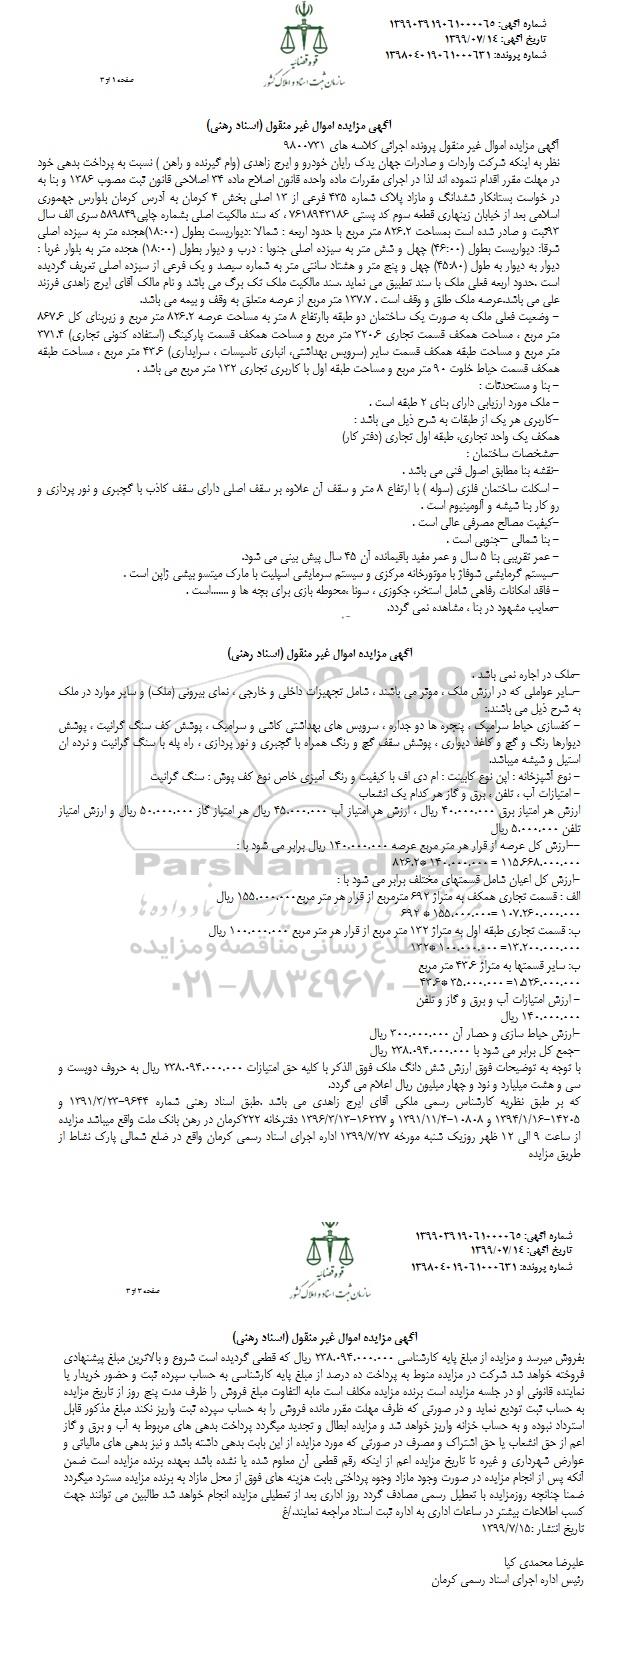 شماره آگهی: ۱۳۹۹۰۳۹۱۹۰۶۱۰۰۰۰۶۵
تاریخ آگهی: ۱۳۹۹/۰۷/۱۴
شماره پرونده: ۱۳۹۸۰۴۰۱۹۰۶۱۰۰۰۶۳۱
قوه قضائیه
سازمان ثبت اسناد و املاک کشور
صفحه ۱ از ۳
آگهی مزایده اموال غیر منقول (اسناد رهنی)
آگهی مزایده اموال غیر منقول پرونده اجرائی کلاسه های ۹۸۰۰۷۳۱
نظر به اینکه شرکت واردات و صادرات جهان یدک رایان خودرو و ایرج زاهدی (وام گیرنده و راهن ) نسبت به پرداخت بدهی خود
در مهلت مقرر اقدام ننموده اند لذا در اجرای مقررات ماده واحده قانون اصلاح ماده ۳۴ اصلاحی قانون ثبت مصوب ۱۳۸۶ و بنا به
در خواست بستانکار ششدانگ و مازاد پلاک شماره ۴۳۵ فرعی از ۱۳ اصلی بخش ۴ کرمان به آدرس کرمان بلوارس جهموری
اسلامی بعد از خیابان زینهاری قطعه سوم کد پستی ۷۶۱۸۹۴۳۱۸۶ ، که سند مالکیت اصلی بشماره چاپی۵۸۹۸۴۹ سری الف سال
۹۳ثبت و صادر شده است بمساحت ۸۲۶.۲ متر مربع با حدود اربعه : شمالا :دیواریست بطول (۱۸:۰۰)هجده متر به سیزده اصلی
شرقا: دیواریست بطول (۴۶:۰۰) چهل و شش متر به سیزده اصلی جنوبا : درب و دیوار بطول (۱۸:۰۰) هجده متر به بلوار غربا :
دیوار به دیوار به طول (۴۵:۸۰) چهل و پنج متر و هشتاد سانتی متر به شماره سیصد و یک فرعی از سیزده اصلی تعریف گردیده
است .حدود اربعه فعلی ملک با سند تطبیق می نماید .سند مالکیت ملک تک برگ می باشد و نام مالک آقای ایرج زاهدی فرزند
علی می باشد.عرصه ملک طلق و وقف است . ۱۳۷.۷ متر مربع از عرصه متعلق به وقف و بیمه می باشد.
– وضعیت فعلی ملک به صورت یک ساختمان دو طبقه باارتفاع ۸ متر به مساحت عرصه ۸۲۶.۲ متر مربع و زیربنای کل ۸۶۷.۶
متر مربع ، مساحت همکف قسمت تجاری ۳۲۰.۶ متر مربع و مساحت همکف قسمت پارکینگ (استفاده کنونی تجاری) ۳۷۱.۴
متر مربع و مساحت طبقه همکف قسمت سایر (سرویس بهداشتی، انباری تاسیسات ، سرایداری) ۴۳.۶ متر مربع ، مساحت طبقه
همکف قسمت حیاط خلوت ۹۰ متر مربع و مساحت طبقه اول با کاربری تجاری ۱۳۲ متر مربع می باشد .
– بنا و مستحدثات :
– ملک مورد ارزیابی دارای بنای ۲ طبقه است .
–کاربری هر یک از طبقات به شرح ذیل می باشد :
همکف یک واحد تجاری، طبقه اول تجاری (دفتر کار)
–مشخصات ساختمان :
–نقشه بنا مطابق اصول فنی می باشد .
– اسکلت ساختمان فلزی (سوله ) با ارتفاع ۸ متر و سقف آن علاوه بر سقف اصلی دارای سقف کاذب با گچبری و نور پردازی و
رو کار بنا شیشه و آلومینیوم است .
–کیفیت مصالح مصرفی عالی است .
– بنا شمالی –جنوبی است .
– عمر تقریبی بنا ۵ سال و عمر مفید باقیمانده آن ۴۵ سال پیش بینی می شود.
–سیستم گرمایشی شوفاژ با موتورخانه مرکزی و سیستم سرمایشی اسپلیت با مارک میتسو بیشی ژاپن است .
– فاقد امکانات رفاهی شامل استخر، جکوزی ، سونا ،محوطه بازی برای بچه ها و .......است .
–معایب مشهود در بنا ، مشاهده نمی گردد.
آگهی مزایده اموال غیر منقول (اسناد رهنی)
–ملک در اجاره نمی باشد .
–سایر عواملی که در ارزش ملک ، موثر می باشند ، شامل تجهیزات داخلی و خارجی ، نمای بیرونی (ملک) و سایر موارد در ملک
به شرح ذیل می باشند.:
– کفسازی حیاط سرامیک ، پنجره ها دو جداره ، سرویس های بهداشتی کاشی و سرامیک ، پوشش کف سنگ گرانیت ، پوشش
دیوارها رنگ و گچ و کاغذ دیواری ، پوشش سقف گچ و رنگ همراه با گچبری و نور پردازی ، راه پله با سنگ گرانیت و نرده ان
استیل و شیشه میباشد.
– نوع آشپزخانه : اپن نوع کابینت : ام دی اف با کیفیت و رنگ آمیزی خاص نوع کف پوش : سنگ گرانیت
– امتیازات آب ، تلفن ، برق و گاز هر کدام یک انشعاب
ارزش هر امتیاز برق ۴۰.۰۰۰.۰۰۰ ریال ، ارزش هر امتیاز آب ۴۵.۰۰۰.۰۰۰ ریال هر امتیاز گاز ۵۰.۰۰۰.۰۰۰ ریال و ارزش امتیاز
تلفن ۵.۰۰۰.۰۰۰ ریال
––ارزش کل عرصه از قرار هر متر مربع عرصه ۱۴۰.۰۰۰.۰۰۰ ریال برابر می شود با :
۱۱۵.۶۶۸.۰۰۰.۰۰۰ = ۱۴۰.۰۰۰.۰۰۰ *۸۲۶.۲
–ارزش کل اعیان شامل قسمتهای مختلف برابر می شود با :
الف : قسمت تجاری همکف به متراژ ۶۹۲ مترمربع از قرار هر متر مربع۱۵۵.۰۰۰.۰۰۰ ریال
۱۰۷.۲۶۰.۰۰۰.۰۰۰ =۱۵۵.۰۰۰.۰۰۰ * ۶۹۲
ب: قسمت تجاری طبقه اول به متراژ ۱۳۲ متر مربع از قرار هر متر مربع ۱۰۰.۰۰۰.۰۰۰ ریال
۱۳.۲۰۰.۰۰۰.۰۰۰= ۱۰۰.۰۰۰.۰۰۰ *۱۳۲
پ: سایر قسمتها به متراژ ۴۳.۶ متر مربع
۱.۵۲۶.۰۰۰.۰۰۰= ۳۵.۰۰۰.۰۰۰ *۴۳.۶
– ارزش امتیازات آب و برق و گاز و تلفن
۱۴۰.۰۰۰.۰۰۰ ریال
–ارزش حیاط سازی و حصار آن ۳۰۰.۰۰۰.۰۰۰ ریال
–جمع کل برابر می شود با ۲۳۸.۰۹۴.۰۰۰.۰۰۰ ریال
با توجه به توضیحات فوق ارزش شش دانگ ملک فوق الذکر با کلیه حق امتیازات ۲۳۸.۰۹۴.۰۰۰.۰۰۰ ریال به حروف دویست و
سی و هشت میلیارد و نود و چهار میلیون ریال اعلام می گردد.
که بر طبق نظریه کارشناس رسمی ملکی آقای ایرج زاهدی می باشد .طبق اسناد رهنی شماره ۹۶۴۴–۱۳۹۱/۳/۲۳ و
۱۴۲۰۵–۱۳۹۴/۱/۱۶ و ۱۰۸۰۸–۱۳۹۱/۱۱/۴ و ۱۶۲۳۷–۱۳۹۶/۳/۱۳ دفترخانه ۲۲۲کرمان در رهن بانک ملت واقع میباشد مزایده
از ساعت ۹ الی ۱۲ ظهر روزیک شنبه مورخه ۱۳۹۹/۷/۲۷ اداره اجرای اسناد رسمی کرمان واقع در ضلع شمالی پارک نشاط از
طریق مزایده
ParsNamadData
پایگاه اطلاع رسانی مناقصه و مزایده
۰۲۱-۸۸۳۴۹۶۷۰-۵
شماره آگهی: ۱۳۹۹۰۳۹۱۹۰۶۱۰۰۰۰۶۵
تاریخ آگهی: ۱۳۹۹/۰۷/۱۴
شماره پرونده: ۱۳۹۸۰۴۰۱۹۰۶۱۰۰۰۶۳۱
قوه قضائیه
سازمان ثبت اسناد و املاک کشور
صفحه ۳ از ۳
آگهی مزایده اموال غیر منقول (اسناد رهنی)
بفروش میرسد و مزایده از مبلغ پایه کارشناسی ۲۳۸.۰۹۴.۰۰۰.۰۰۰ ریال که قطعی گردیده است شروع و بالاترین مبلغ پیشنهادی
فروخته خواهد شد شرکت در مزایده منوط به پرداخت ده درصد از مبلغ پایه کارشناسی به حساب سپرده ثبت و حضور خریدار یا
نماینده قانونی او در جلسه مزایده است برنده مزایده مکلف است مابه التفاوت مبلغ فروش را ظرف مدت پنج روز از تاریخ مزایده
به حساب ثبت تودیع نماید و در صورتی که ظرف مهلت مقرر مانده فروش را به حساب سپرده ثبت واریز نکند مبلغ مذکور قابل
استرداد نبوده و به حساب خزانه واریز خواهد شد و مزایده ابطال و تجدید میگردد پرداخت بدهی های مربوط به آب و برق و گاز
اعم از حق انشعاب یا حق اشتراک و مصرف در صورتی که مورد مزایده از این بابت بدهی داشته باشد و نیز بدهی های مالیاتی و
عوارض شهرداری و غیره تا تاریخ مزایده اعم از اینکه رقم قطعی آن معلوم شده یا نشده باشد بعهده برنده مزایده است ضمن
آنکه پس از انجام مزایده در صورت وجود مازاد وجوه پرداختی بابت هزینه های فوق از محل مازاد به برنده مزایده مسترد میگردد
ضمنا چنانچه روزمزایده با تعطیل رسمی مصادف گردد روز اداری بعد از تعطیلی مزایده انجام خواهد شد طالبین می توانند جهت
کسب اطلاعات بیشتر در ساعات اداری به اداره ثبت اسناد مراجعه نمایند./غ
تاریخ انتشار :۱۳۹۹/۷/۱۵
علیرضا محمدی کیا
رئیس اداره اجرای اسناد رسمی کرمان